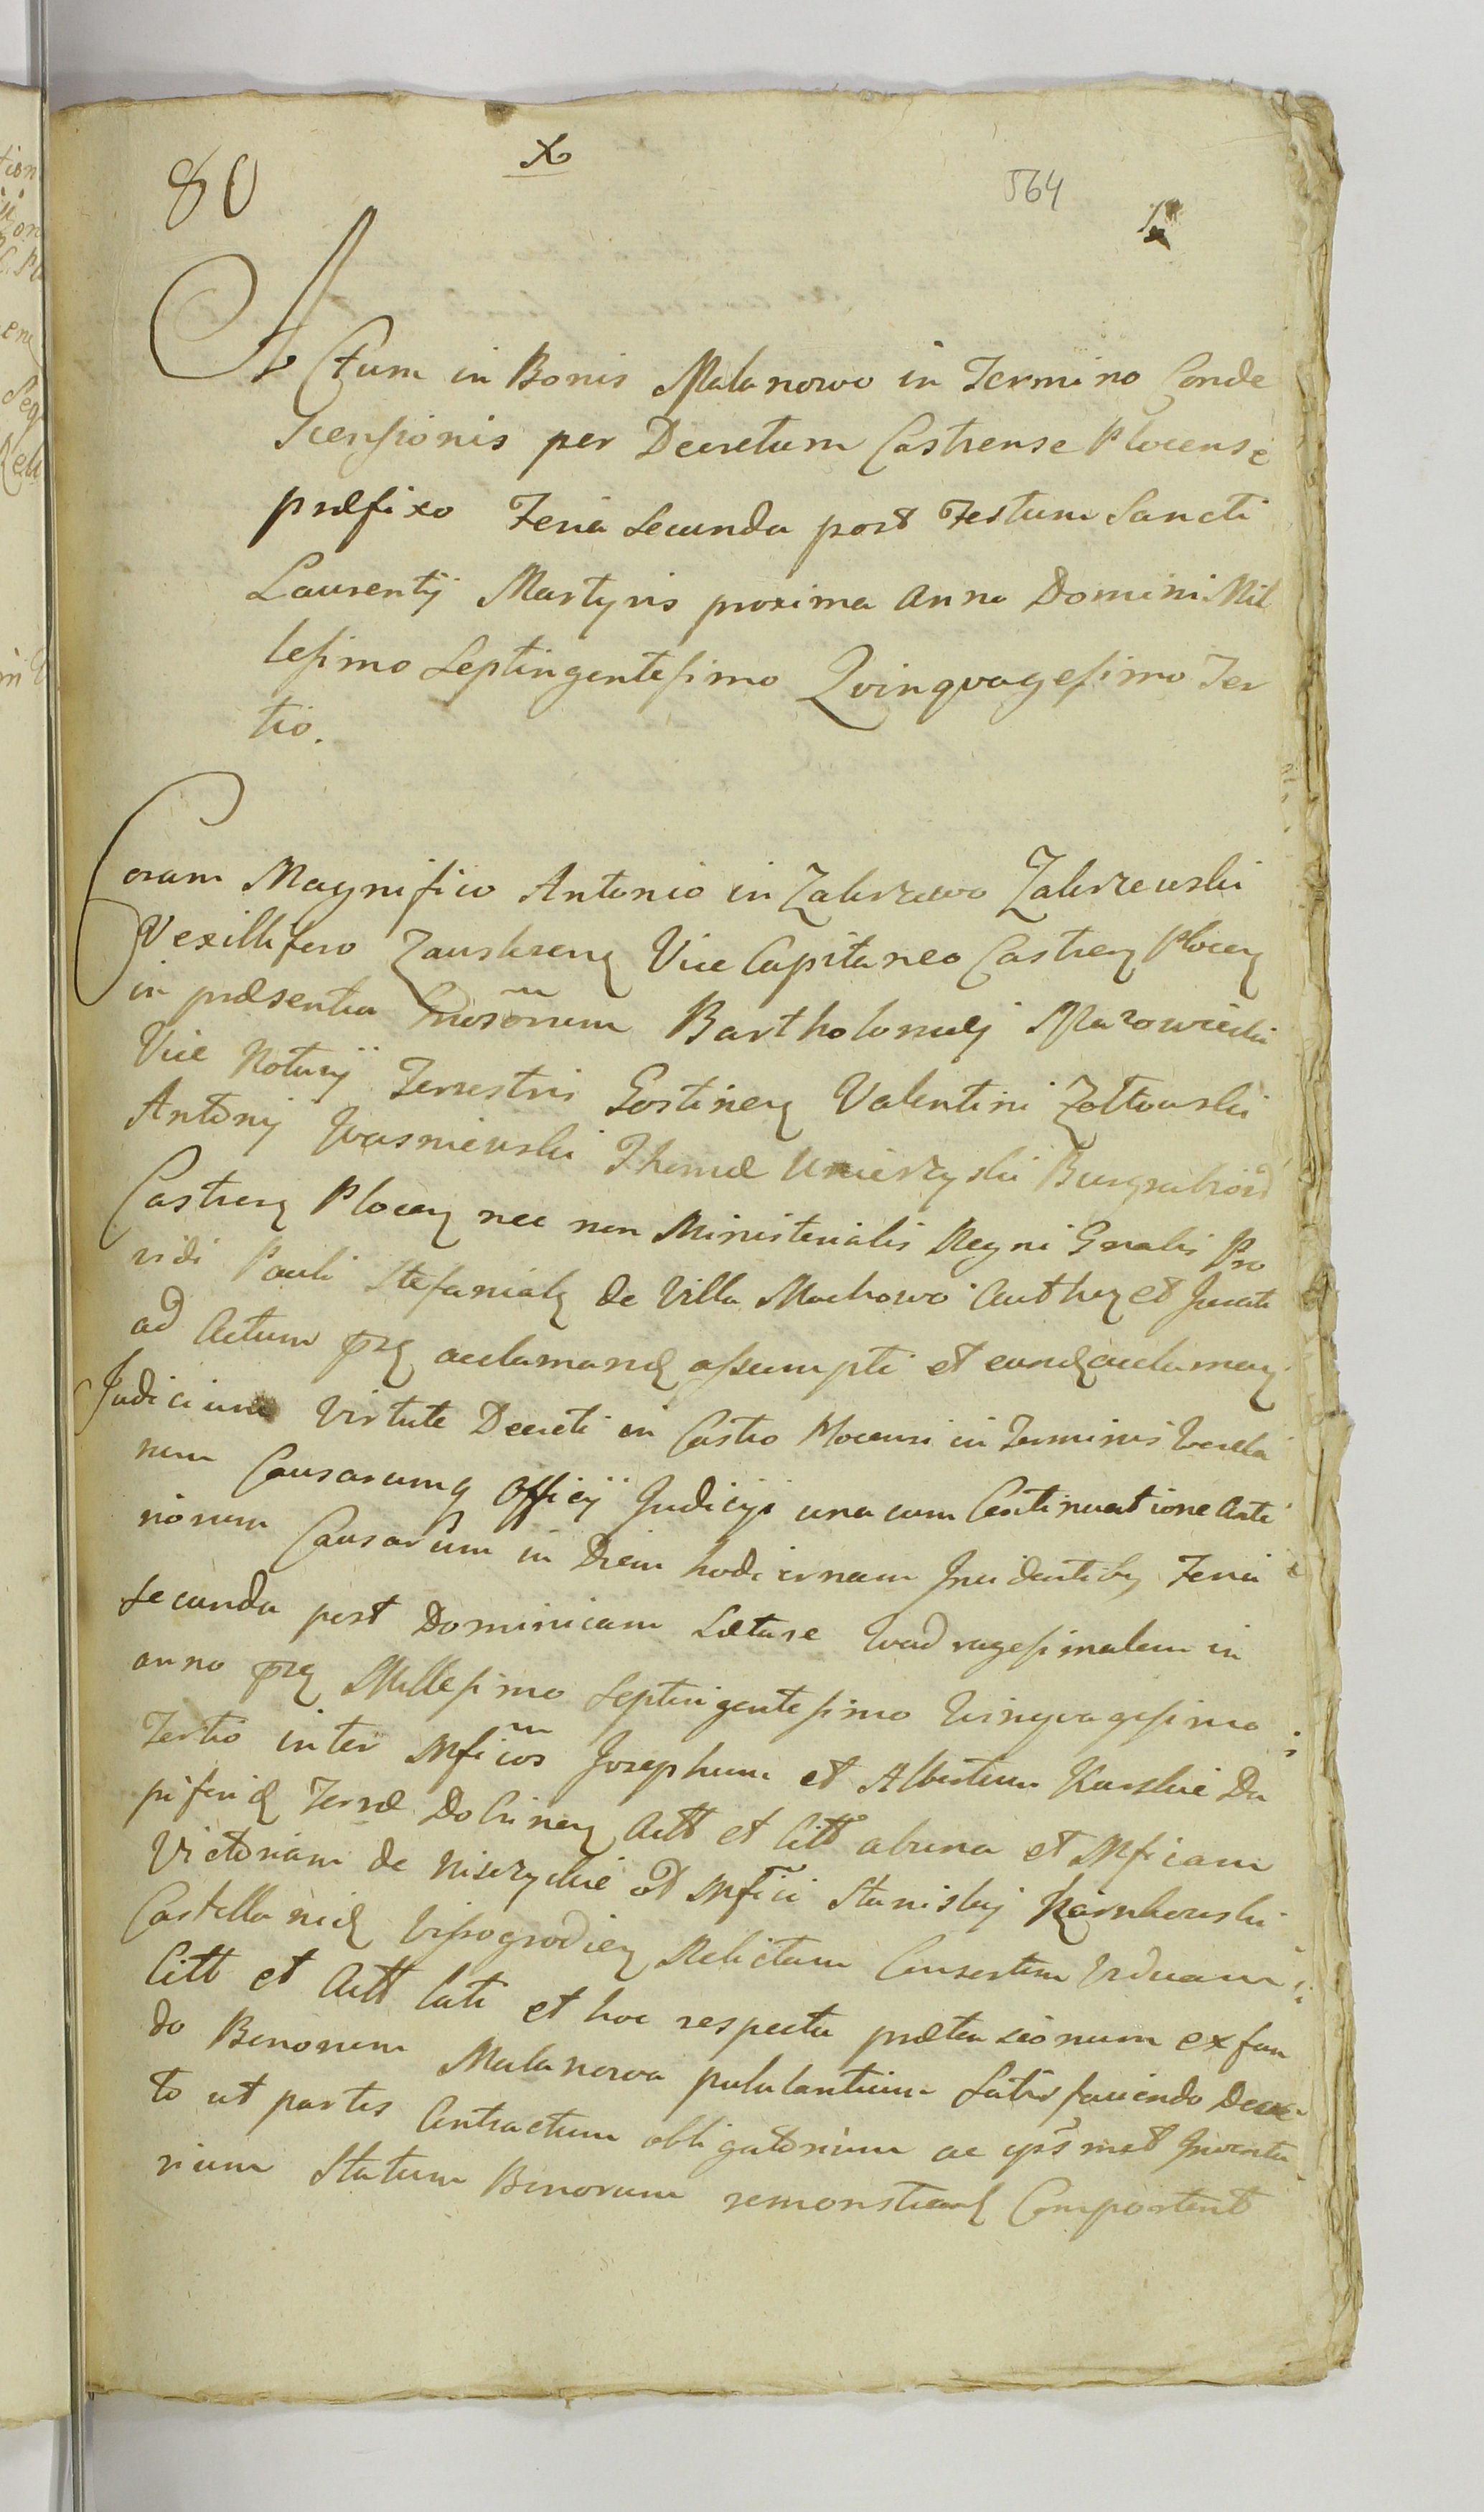 80
564
Actum in Bonis Malanowo in Termino Conde
scensionis per Decretum Castrense Plocense
præfixo Feria Secunda post Festum Sancti
Laurentij Martyris proxima Anno Domini Mil
lesimo Septingentesimo Qvinqvagesimo Ter
tio.
Coram Magnifico Antonio in Zakrzewo Zakrzewski
Vexillifero Zauskreng Vice Capitaneo Castren Plocen
in præsentia Grosorum Bartholomæj Mazowiecki
Vice Notarij Terrestris Gostinen Valentini Zołtowski
Antonij Wasniewski Thomæ Umierzyski Burgrabiorū
Castren Plocen nec non Ministerialis Regni Gnalis Pro
vidi Pauli Stefaniak de Villa Machowo Authen et Jurati
ad Actum præ acclamand assumpti et eund acclaman
Judicium Virtute Decreti in Castro Plocensi in Terminis Qverela
rum Causarumq Officij Judicijs una cum Continuatione Acti
niorum Causarum in Diem hodiernam Incidentibus Feria
Secunda post Dominicam Lætare Qvadragesimalem in
anno præ Millesimo Septingentesimo Qvinqvagesimo
Tertio inter Mficos Josephum et Albertum Karskie Da
piferid Terræ Dobrinen Actt et Citt ab una et Mficam
Victoriam de Niszczyckie olt Mfici Stanislaj Karnkowski
Castellanid Vissogrodien Relictam Consortem Viduam
Citt et Actt lati et hoc respectu prætensionum ex fun
do Bonorum Malanowa pululantium Satisfaciendo Decre
to ut partes Contractum obligatorium ac ipsmet Inventa
rium Statum Bonorum remonstrand Comportent